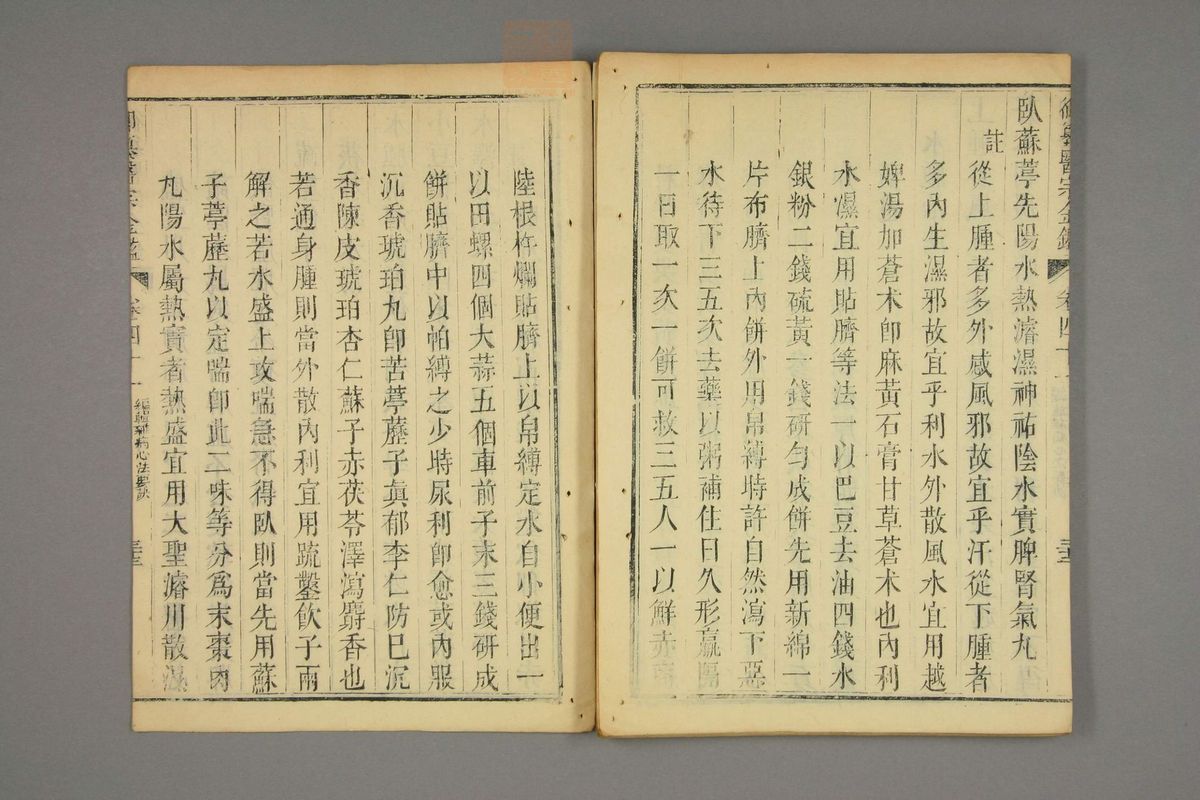 御纂醫宗金鑑 卷四十一
臥蘇葶先陽水熱濬濕神祐陰水實脾腎氣丸
註
從上腫者多外感風邪故宜乎汗從下腫者
多內生濕邪故宜乎利水外散風水宜用越
婢湯加蒼朮卽麻黃石膏甘草蒼朮也內利
水濕宜用貼臍等法一以巴豆去油四錢水
銀粉二錢硫黃一錢硏勻成餅先用新綿一
片布臍上內餅外用帛縛時許自然瀉下惡
水待下三五次去藥以粥補住日久形羸隔
一日取一次一餅可救三五人一以鮮赤商
陸根杵爛貼臍上以帛縛定水自小便出一
以田螺四個大蒜五個車前子末三錢硏成
餅貼臍中以帕縛之少時尿利卽愈或內服
沉香琥珀丸卽苦葶藶子眞郁李仁防已沉
香陳皮琥珀杏仁蘇子赤茯苓澤瀉麝香也
若通身腫則當外散內利宜用䟽鑿飮子兩
解之若水盛上攻喘急不得臥則當先用蘇
子葶藶丸以定喘卽此二味等分爲末棗肉
丸陽水屬熱實者熱盛宜用大聖濬川散濕
御纂醫宗金鑑 卷四十一 編輯雜病心法要訣